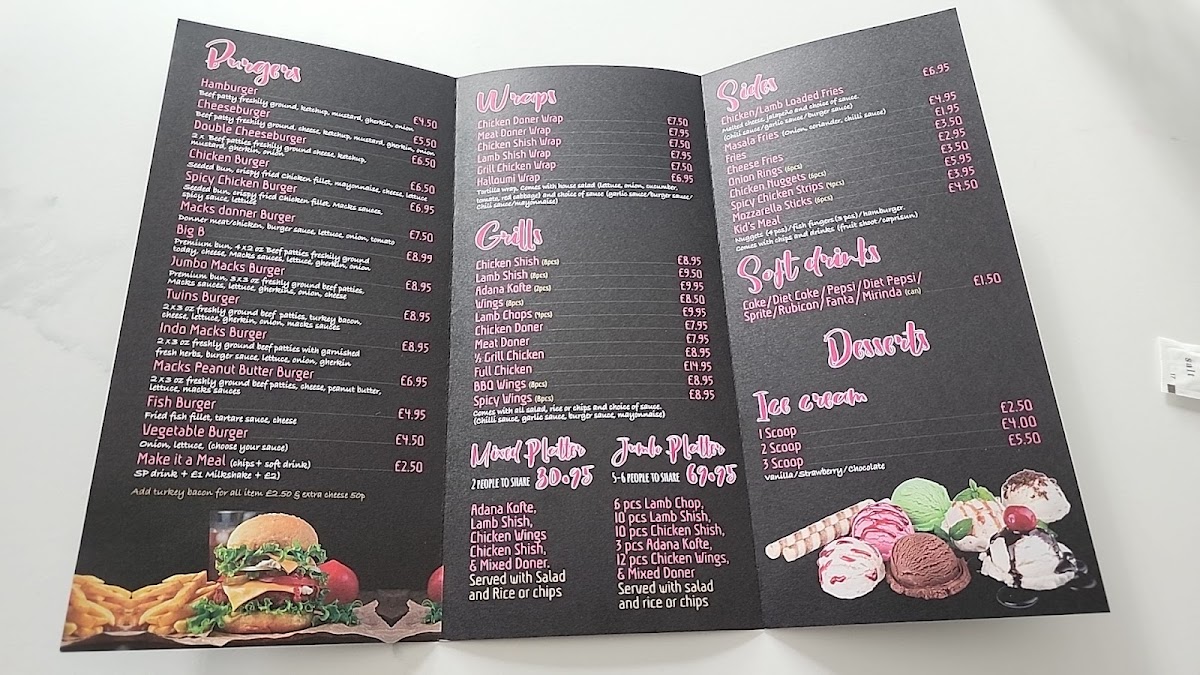 Burgers
Hamburger £4.50
Beef patty freshily ground, ketchup, mustard, gherkin, onion
Cheeseburger £5.50
Beef patty freshily ground, cheese, ketchup, mustard, gherkin, onion
Double Cheeseburger £6.50
2 x Beef patties freshily ground cheese, ketchup,
mustard, gherkin, onion
Chicken Burger £6.50
Seeded bun, crispy fried Chicken fillet, mayonnaise, cheese, lettuce
Spicy Chicken Burger £6.95
Seeded bun, crispy fried Chicken fillet, Macks sauces,
spicy sauce, lettuce
Macks donner Burger £7.50
Donner meat/chicken, burger sauce, lettuce, onion, tomato
Big B £8.99
Premium bun, 4x2 oz Beef patties freshily ground
today, cheese, Macks sauces, lettuce, gherkin, onion
Jumbo Macks Burger £8.95
Premium bun, 3x3 oz freshly ground beef patties,
Macks sauces, lettuce, gherkins, onion, cheese
Twins Burger £8.95
2x3 oz freshly ground beef patties, turkey bacon,
cheese, lettuce, gherkin, onion, macks sauces
Indo Macks Burger £8.95
2x3 oz freshly ground beef patties with garnished
fresh herbs, burger sauce, lettuce, onion, gherkin
Macks Peanut Butter Burger £6.95
2x3 oz freshly ground beef patties, cheese, peanut butter,
lettuce, macks sauces
Fish Burger £4.95
Fried fish fillet, tartare sauce, cheese
Vegetable Burger £4.50
Onion, lettuce, (choose your sauce)
Make it a Meal (chips + soft drink) £2.50
SP drink + £1 Milkshake + £2)
Add turkey bacon for all item £2.50 & extra cheese 50p
Wraps
Chicken Doner Wrap £7.50
Meat Doner Wrap £7.95
Chicken Shish Wrap £7.50
Lamb Shish Wrap £7.95
Grill Chicken Wrap £7.50
Halloumi Wrap £6.95
Tortilla wrap, Comes with house salad (lettuce, onion, cucumber,
tomato, red cabbage) and choice of sauce (garlic sauce/burger sauce/
Chilli sauce/mayonnaise)
Grills
Chicken Shish (8pcs) £8.95
Lamb Shish (8pcs) £9.50
Adana Kofte (2pcs) £9.95
Wings (8pcs) £8.50
Lamb Chops (4pcs) £9.95
Chicken Doner £7.95
Meat Doner £7.95
½ Grill Chicken £8.95
Full Chicken £14.95
BBQ Wings (8pcs) £8.95
Spicy Wings (8pcs) £8.95
Comes with all salad, rice or chips and choice of sauce.
(Chilli sauce, garlic sauce, burger sauce, mayonnaise)
Mixed Platter
2 PEOPLE TO SHARE 30.95
Adana Kofte,
Lamb Shish,
Chicken Wings
Chicken Shish,
& Mixed Doner.
Served with Salad
and Rice or chips
Jumbo Platter
5-6 PEOPLE TO SHARE 69.95
6 pcs Lamb Chop,
10 pcs Lamb Shish,
10 pcs Chicken Shish,
3 pcs Adana Kofte,
12 pcs Chicken Wings,
& Mixed Doner
Served with salad
and rice or chips
Sides
Chicken/Lamb Loaded Fries £6.95
Malted cheese, jalapeño and choice of sauce.
(Chilli sauce/garlic sauce/burger sauce)
Masala Fries (Onion, coriander, chilli sauce) £4.95
Fries £1.95
Cheese Fries £3.50
Onion Rings (6pcs) £2.95
Chicken Nuggets (6pcs) £3.50
Spicy Chicken Strips (4pcs) £5.95
Mozzarella Sticks (6pcs) £3.95
Kid's Meal £4.50
Nuggets (4 pcs)/fish fingers(3 pcs)/hamburger.
Comes with chips and drinks (fruit shoot/caprisun)
Soft drinks
Coke/Diet Coke/Pepsi/Diet Pepsi/ £1.50
Sprite/Rubicon/Fanta/Mirinda (can)
Desserts
Ice cream
1 Scoop £2.50
2 Scoop £4.00
3 Scoop £5.50
Vanilla/Strawberry/Chocolate
salt